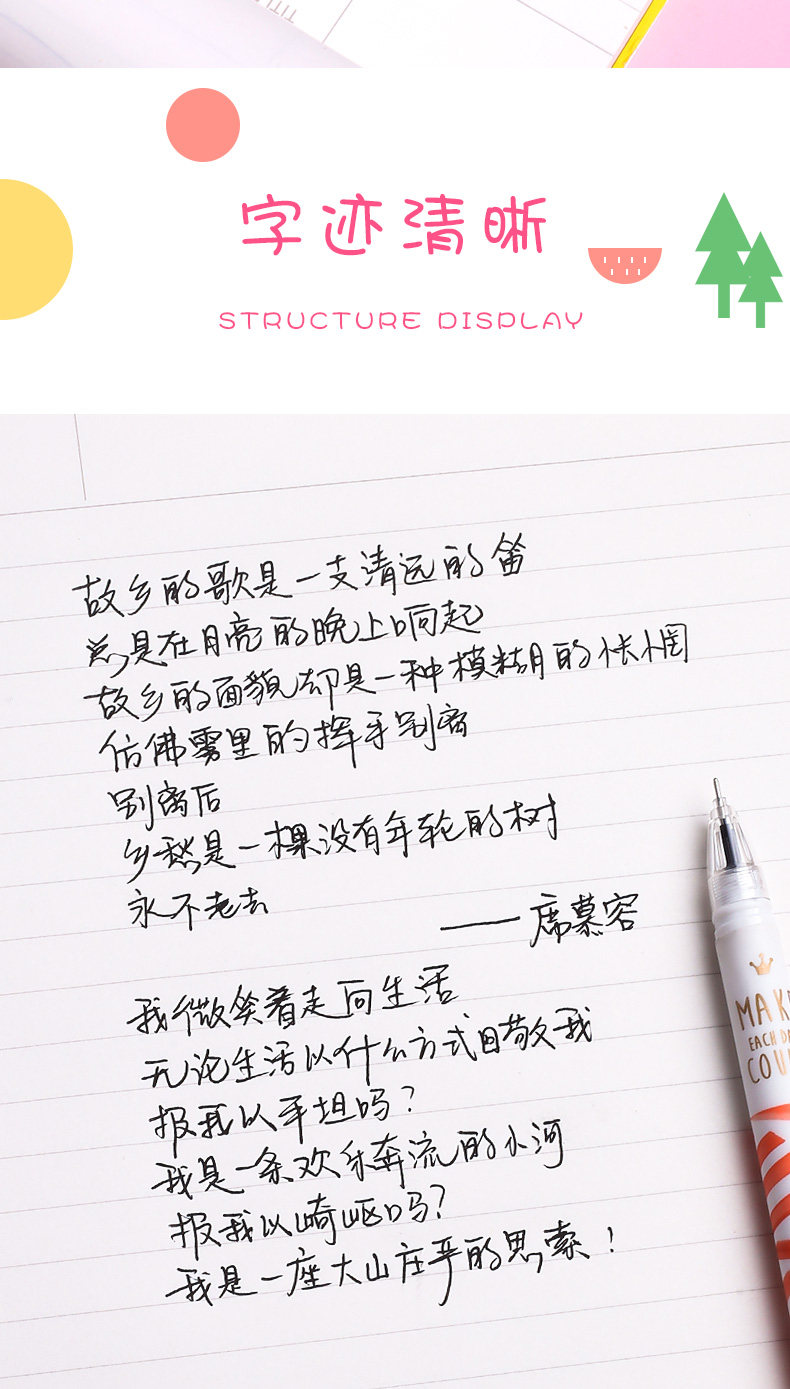 字迹清晰
STRUCTURE DISPLAY
故乡的歌是一支清远的笛
总是在月亮的晚上响起
故乡的面貌却是一种模糊的怅惘
仿佛雾里的挥手别离
别离后
乡愁是一棵没有年轮的树
永不老去
——席慕容
我微笑着走向生活
无论生活以什么方式回敬我
报我以平坦吗?
我是一条欢乐奔流的小河
报我以崎岖吗?
我是一座大山庄严的思索!
MAK
EACH DA
COU